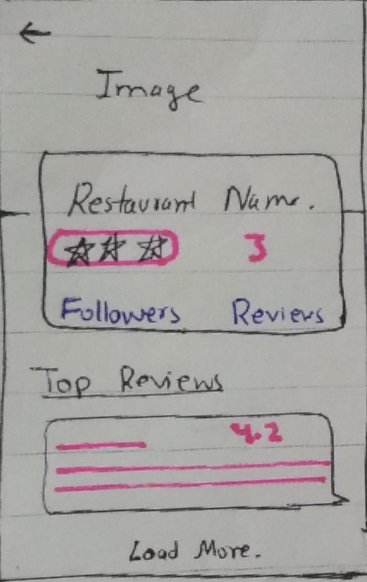 ←
Image
Restaurant Name.
☆☆☆ 3
Followers Reviews
Top Reviews
4.2
Load More.